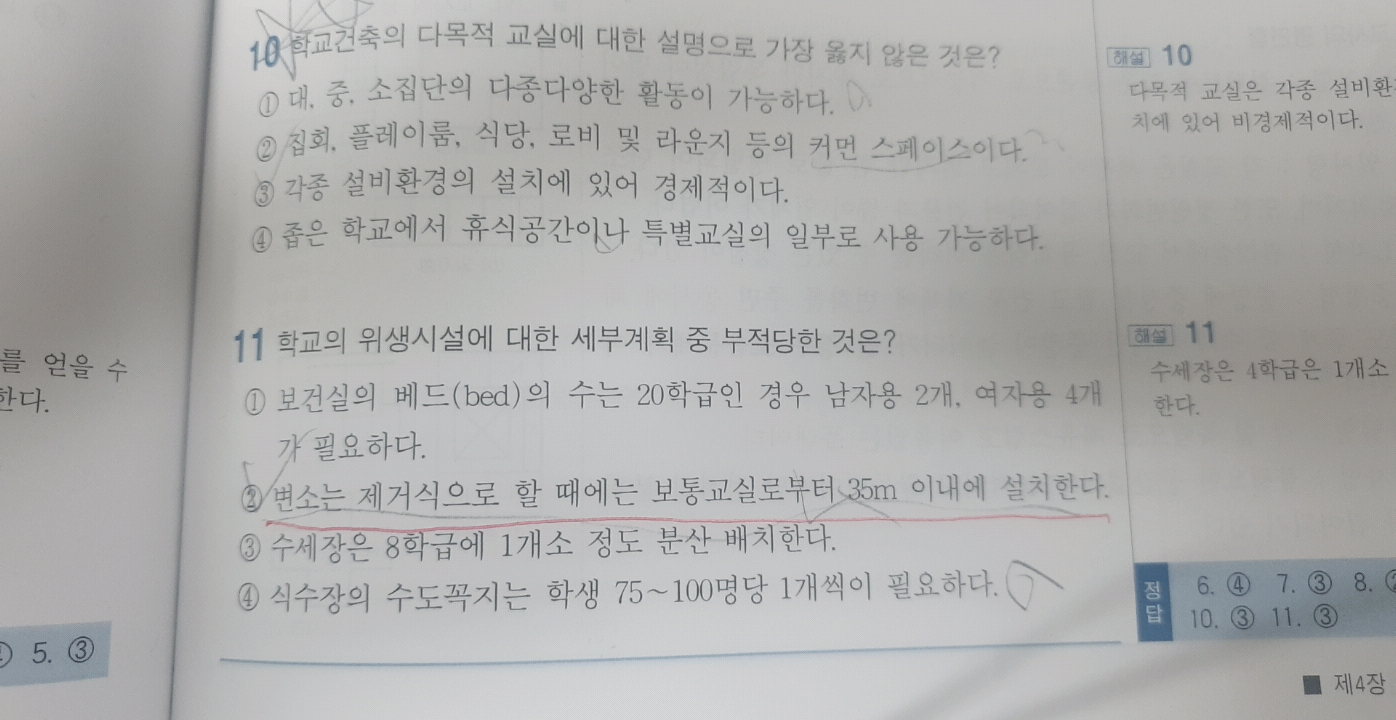 를 얻을 수
한다.
5. ③
10 학교건축의 다목적 교실에 대한 설명으로 가장 옳지 않은 것은?
① 대, 중, 소집단의 다종다양한 활동이 가능하다.
② 집회, 플레이룸, 식당, 로비 및 라운지 등의 커먼 스페이스이다.
③ 각종 설비환경의 설치에 있어 경제적이다.
④ 좁은 학교에서 휴식공간이나 특별교실의 일부로 사용 가능하다.
11 학교의 위생시설에 대한 세부계획 중 부적당한 것은?
① 보건실의 베드(bed)의 수는 20학급인 경우 남자용 2개, 여자용 4개
가 필요하다.
② 변소는 제거식으로 할 때에는 보통교실로부터 35m 이내에 설치한다.
③ 수세장은 8학급에 1개소 정도 분산 배치한다.
④ 식수장의 수도꼭지는 학생 75~100명당 1개씩이 필요하다.
해설 10
다목적 교실은 각종 설비환
치에 있어 비경제적이다.
해설 11
수세장은 4학급은 1개소
한다.
정답
6. ④ 7. ③ 8.
10. ③ 11. ③
■ 제4장